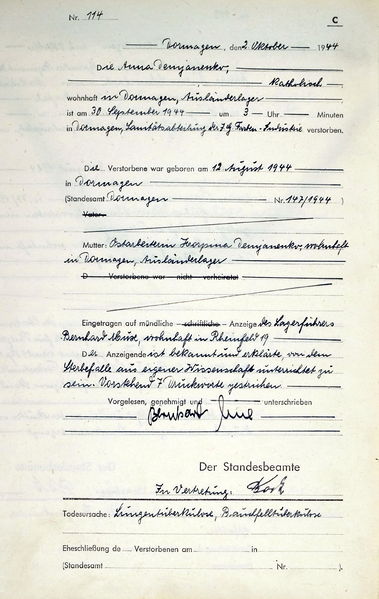 Nr. 114
C
Dormagen, den 2. Oktober 1944
Die Anna Demjanenko,
Katholisch
wohnhaft in Dormagen, Ausländerlager
ist am 30. September 1944 um 3 Uhr Minuten
in Dormagen, Sanitätsabteilung der I G Farben-Industrie verstorben.
Die Verstorbene war geboren am 12. August 1944
in Dormagen
(Standesamt Dormagen Nr. 147/1944)
Vater:
Mutter: Ostarbeiterin Horpina Demjanenko, wohnhaft
in Dormagen, Ausländerlager
D Verstorbene war nicht verheiratet
Eingetragen auf mündliche schriftliche Anzeige des Lagerführers
Bernhard wohnhaft in Rheinfeld 19
Der Anzeigende ist bekannt und erklärte, von dem
Sterbefalle aus eigener Wissenschaft unterrichtet zu
sein. Vorstehend 7 Druckworte gestrichen
Vorgelesen, genehmigt und unterschrieben
Bernhard
Der Standesbeamte
In Vertretung:
Todesursache: Lungentüberkulose, Bauchfelltüberkulose
Eheschließung de Verstorbenen am in
(Standesamt Nr. )